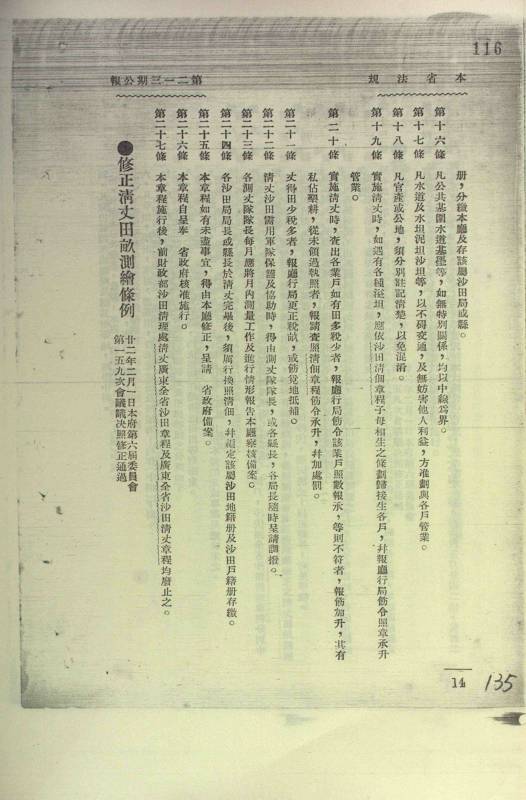 116
本省法規
第二一三期公報
册，分繳本廳及存該屬沙田局或縣。
第十六條　凡公共基圍水道基摆等，如無特別關係，均以中線爲界。
第十七條　凡水道及水坦泥坦沙坦等，以不碍交通，及無妨害他人利益，方准劃與各戶管業。
第十八條　凡官產或公地，須分別註記清楚，以免混淆。
第十九條　實施清丈時，如遇有各種溢坦，應依沙田清佃章程子母相生之條劃歸接生各戶，幷報廳行局飭令照章承升
管業。
第二十條　實施清丈時，查出各業戶如有田多稅少者，報廳行局飭令該業戶照數報承，等則不符者，報飭加升，其有
私佔墾耕，從未領過執照者，報請查照清佃章程飭令承升，幷加處罰。
第二十一條　丈得田少稅多者，報廳行局更正稅畝，或飭覓地抵補。
第二十二條　清丈沙田需用軍隊保護及協助時，得由測丈隊隊長，或各縣長，各局長隨時呈請調撥。
第二十三條　各測丈隊隊長每月應將月內測量工作及進行情形報告本廳察核備案。
第二十四條　各沙田局局長或縣長於清丈完畢後，須厲行換照清佃，幷編定該屬沙田地籍册及沙田戶籍册存繳。
第二十五條　本章程如有未盡事宜，得由本廳修正，呈請　省政府備案。
第二十六條　本章程自呈奉　省政府核准施行。
第二十七條　本章程施行後，前財政部沙田清理處清丈廣東全省沙田章程及廣東全省沙田清丈章程均廢止之。
●修正清丈田畝測繪條例
廿二年二月一日本府第六屆委員會
第一五九次會議議決照修正通過
14
135